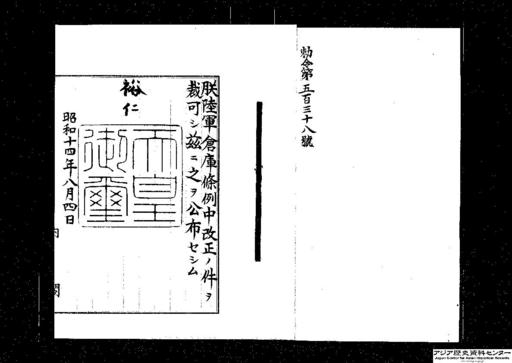 勅令第五百三十八號
朕陸軍倉庫條例中改正ノ件ヲ
裁可シ茲ニ之ヲ公布セシム
裕仁
天皇
御璽
昭和十四年八月四日
内閣
アジア歴史資料センター
Japan Center for Asian Historical Records